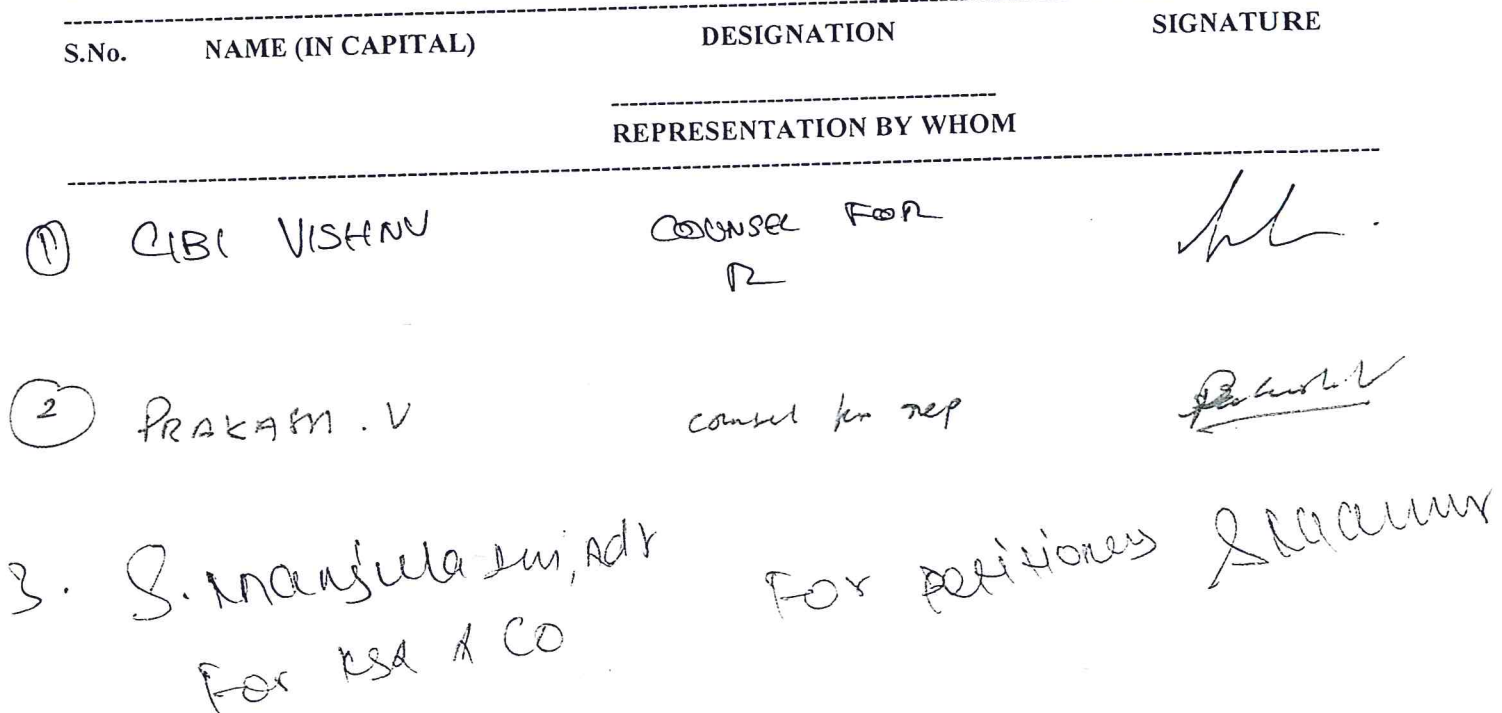 S.No. NAME (IN CAPITAL) DESIGNATION SIGNATURE
REPRESENTATION BY WHOM
1 CIBI VISHNU COUNSEL FOR
R
2 PRAKASH . V counsel for rep
3. S. Manjula Devi, Adv For petitioners
For KSR & CO